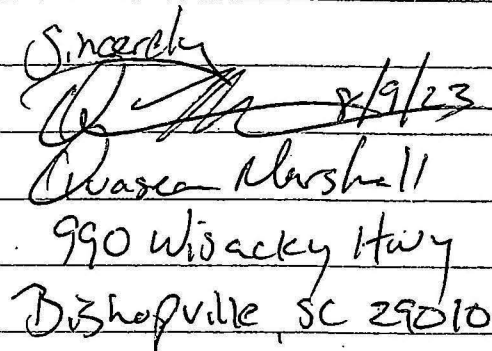 Sincerely
8/9/23
Quasean Marshall
990 Wisacky Hwy
Bishopville, SC 29010